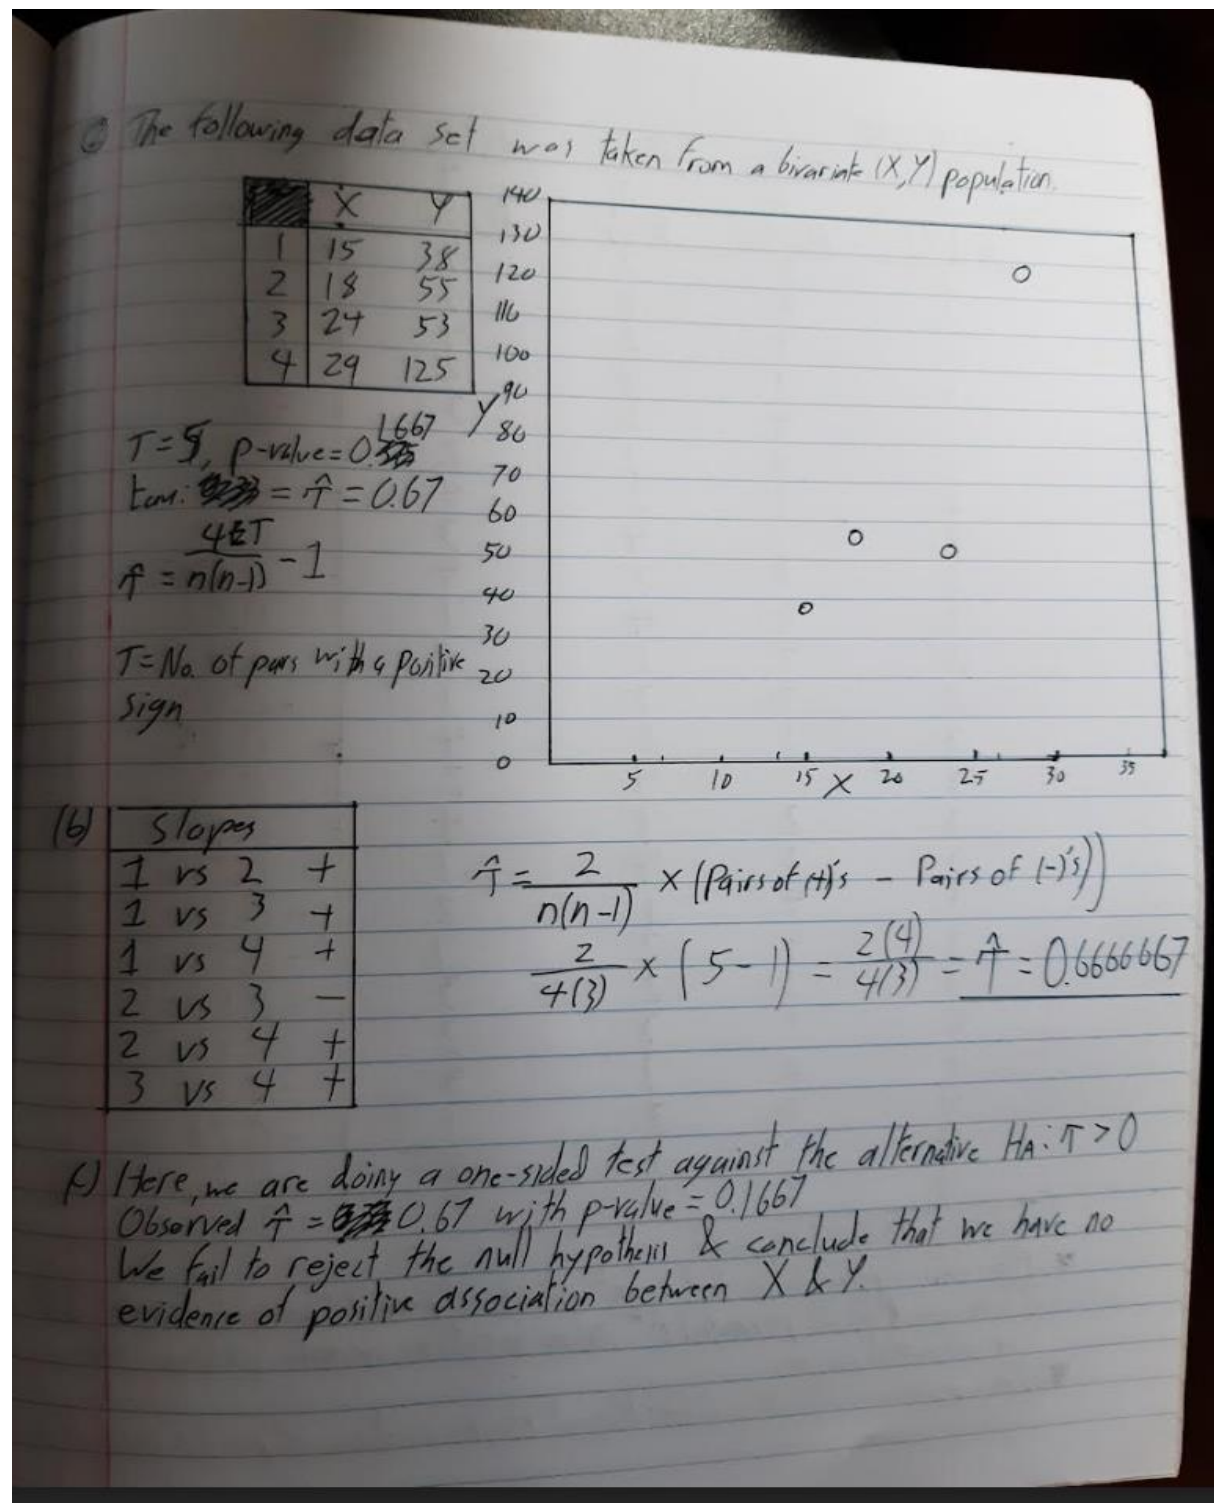 The following data set was taken from a bivariate (X,Y) population.
X Y
1 15 38
2 18 55
3 24 53
4 29 125
T=5, p-value=0.1667
= τ̂ = 0.67
τ̂ = 4T/n(n-1) - 1
T=No. of pars with a positive
sign
140
130
120
110
100
90
Y
80
70
60
50
40
30
20
10
0
5 10 15 X 20 25 30 35
(b) Slopes
1 vs 2 +
1 vs 3 +
1 vs 4 +
2 vs 3 −
2 vs 4 +
3 vs 4 +
τ̂ = 2/n(n-1) × (Pairs of (+)'s − Pairs of (-)'s))
2/4(3) × (5-1) = 2(4)/4(3) = τ̂ = 0.6666667
Here, we are doing a one-sided test against the alternative HA: τ > 0
Observed τ̂ = 0.67 with p-value = 0.1667
We fail to reject the null hypothesis & conclude that we have no
evidence of positive association between X & Y.